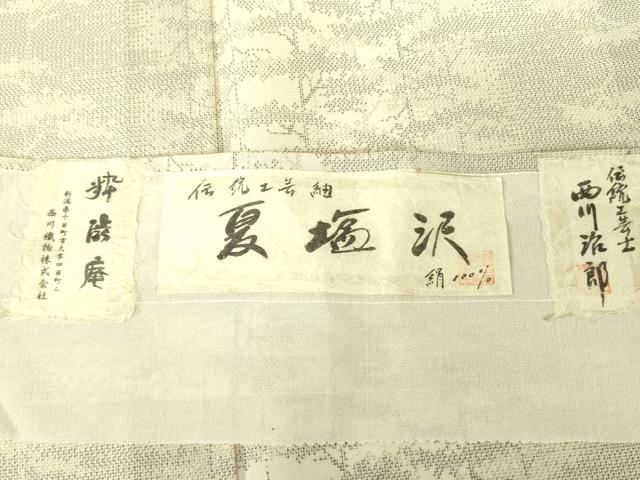 伝統工芸紬
夏塩沢
絹100%
伝統工芸士
西川治郎
新潟県十日町市大字四日町三
西川織物株式会社